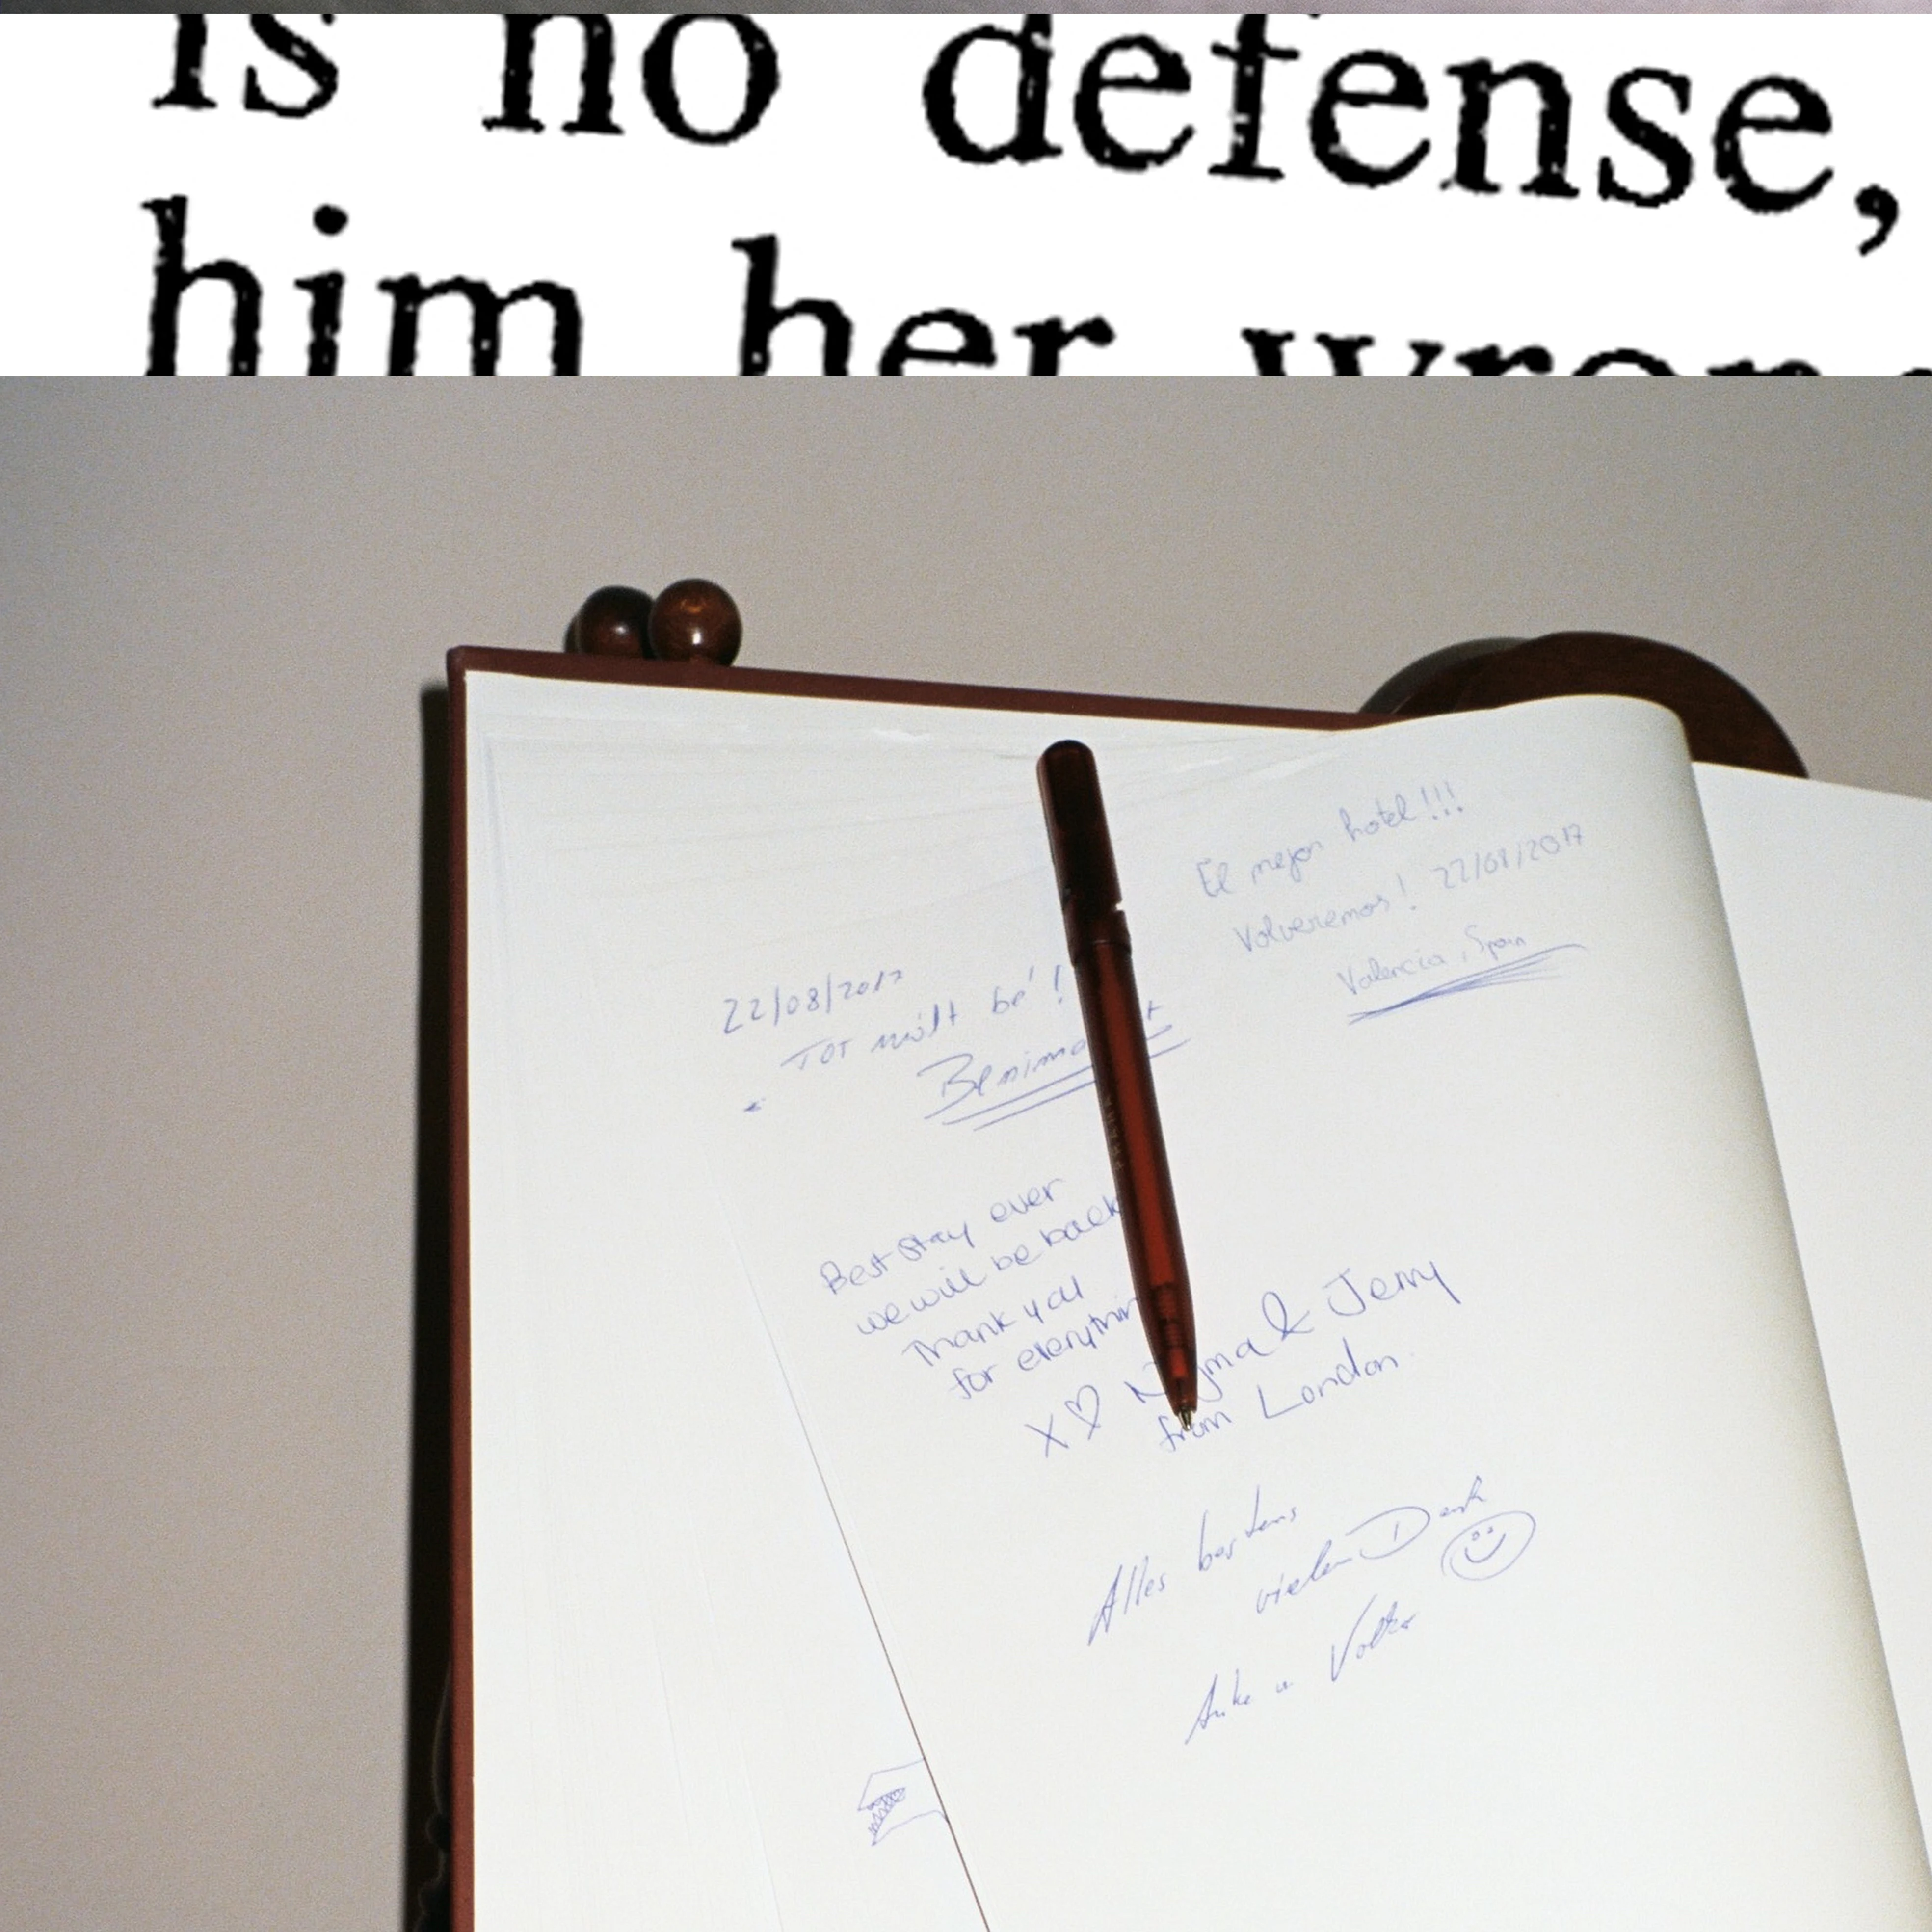 is no defense,
him her
El mejor hotel!!!
Volveremos! 22/08/2017
Valencia, Spain
22/08/2017
TOT mólt bé!
Best stay ever
we will be back
Thank you
for
X♡ & Jerry
from London
Alles bestens
vielen Dank
Anke u Volker